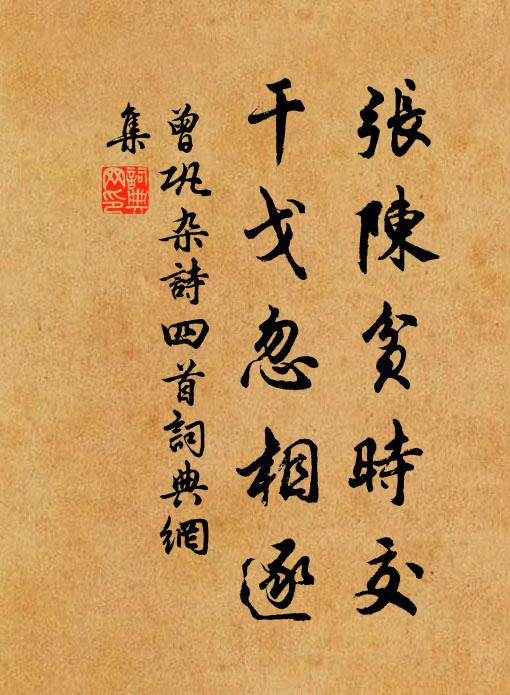 張陳貧時交
干戈忽相逐
曾鞏杂詩四首詞典網
集
詞典网印